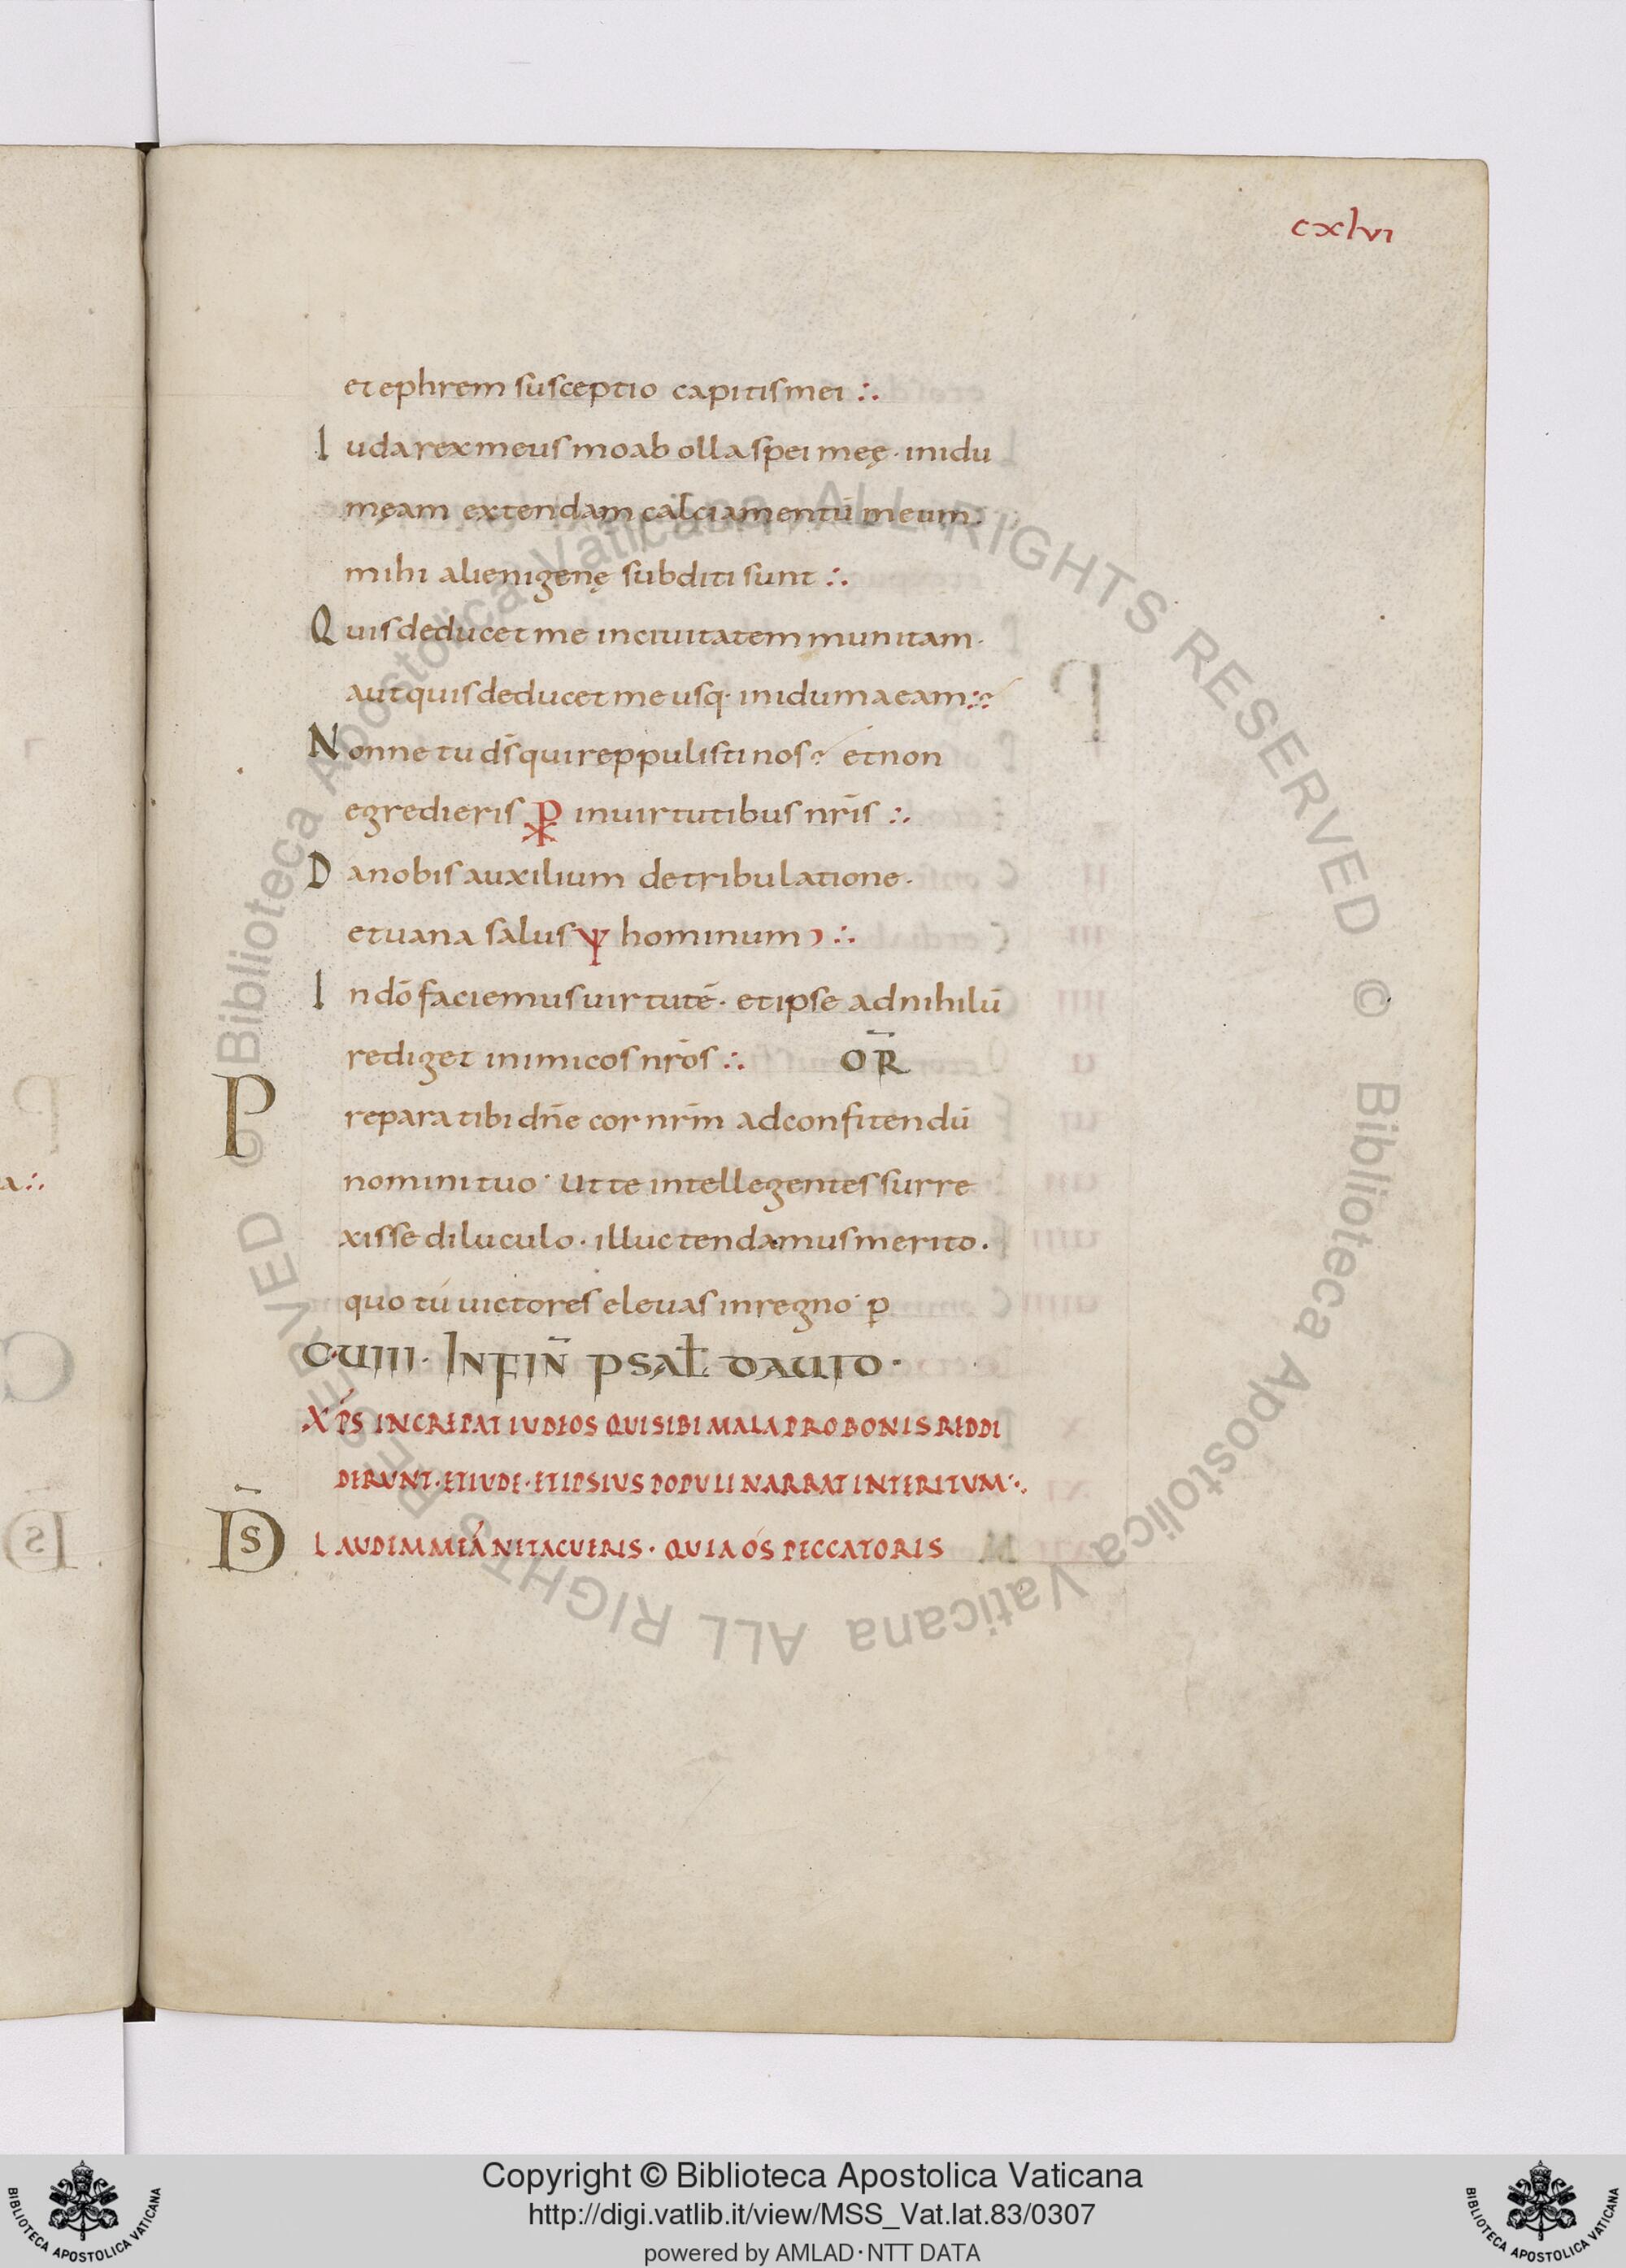 cxlvi
et ephrem susceptio capitis mei ∴
Iuda rex meus moab olla spei meę · in idu
męam extendam calciamentū meum.
mihi alienigenę subditi sunt ∴
Quis deducet me in ciuitatem munitam ·
aut quis deducet me usq· in idumaeam ∴
Nonne tu d̄s qui reppulisti nos et non
egredieris ⳩ in uirtutibus nr̄is ∴
Da nobis auxilium de tribulatione ·
et uana salus ψ hominum ∴
In dō faciemus uirtutē · et ipse ad nihilū
rediget inimicos nr̄os ∴ OR̄
Prepara tibi dn̄e cor nr̄m ad confitendū
nomini tuo · ut te intellegentes surre
xisse diluculo · illuc tendamus merito .
quo tú uictores eleuas in regno · p
CUIII · IN FIN̄ PSAŁ DAUID ·
XP̄S INCREPAT IUDEOS QUI SIBI MALA PRO BONIS REDDI
DERUNT · ET IUDE · ET IPSIUS POPULI NARRAT INTERITUM ∴
D̄S LAUDEM MEĀ NE TACUERIS · QUIA ÓS PECCATORIS
a ∴
© Biblioteca Apostolica Vaticana ALL RIGHTS RESERVED
© Biblioteca Apostolica Vaticana ALL RIGHTS RESERVED
Copyright © Biblioteca Apostolica Vaticana
http://digi.vatlib.it/view/MSS_Vat.lat.83/0307
powered by AMLAD·NTT DATA
BIBLIOTECA APOSTOLICA VATICANA
BIBLIOTECA APOSTOLICA VATICANA